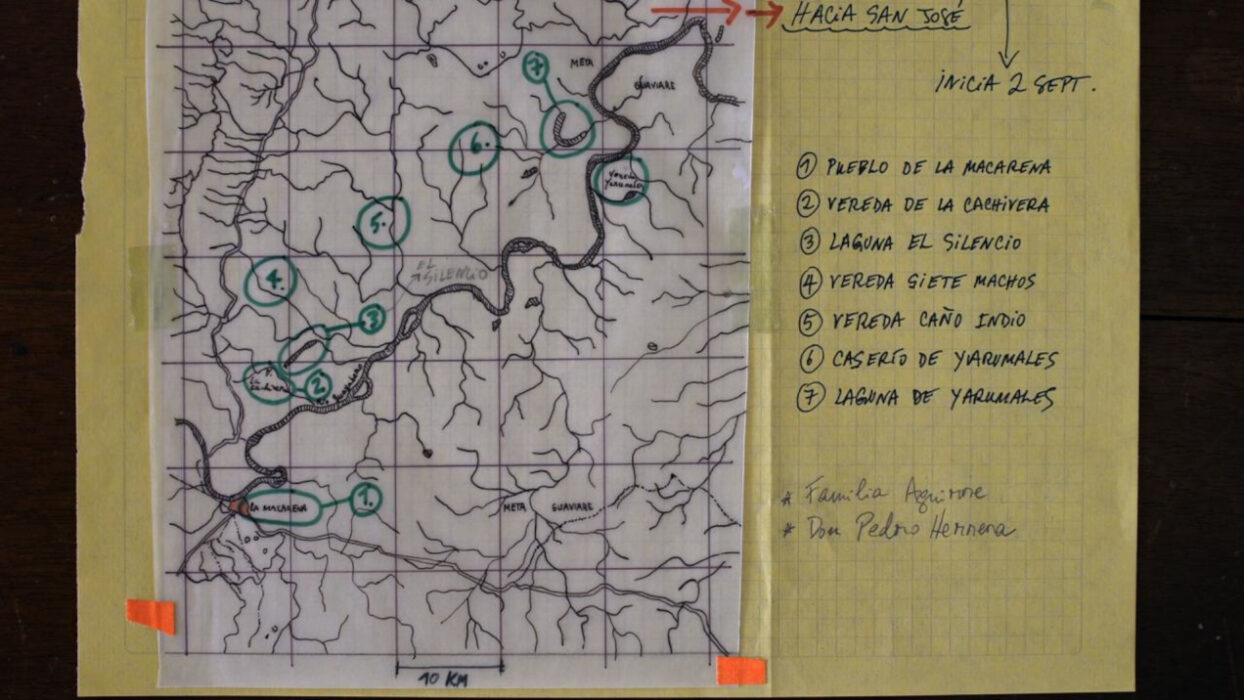 HACIA SAN JOSÉ
INICIA 2 SEPT.
7
META
GUAVIARE
6.
VEREDA
YARUMALES
5.
EL
SILENCIO
4.
3
2
LA MACARENA
1.
META GUAVIARE
10 KM
① PUEBLO DE LA MACARENA
② VEREDA DE LA CACHIVERA
③ LAGUNA EL SILENCIO
④ VEREDA SIETE MACHOS
⑤ VEREDA CAÑO INDIO
⑥ CASERÍO DE YARUMALES
⑦ LAGUNA DE YARUMALES
* Familia Aguirre
* Don Pedro Herrera